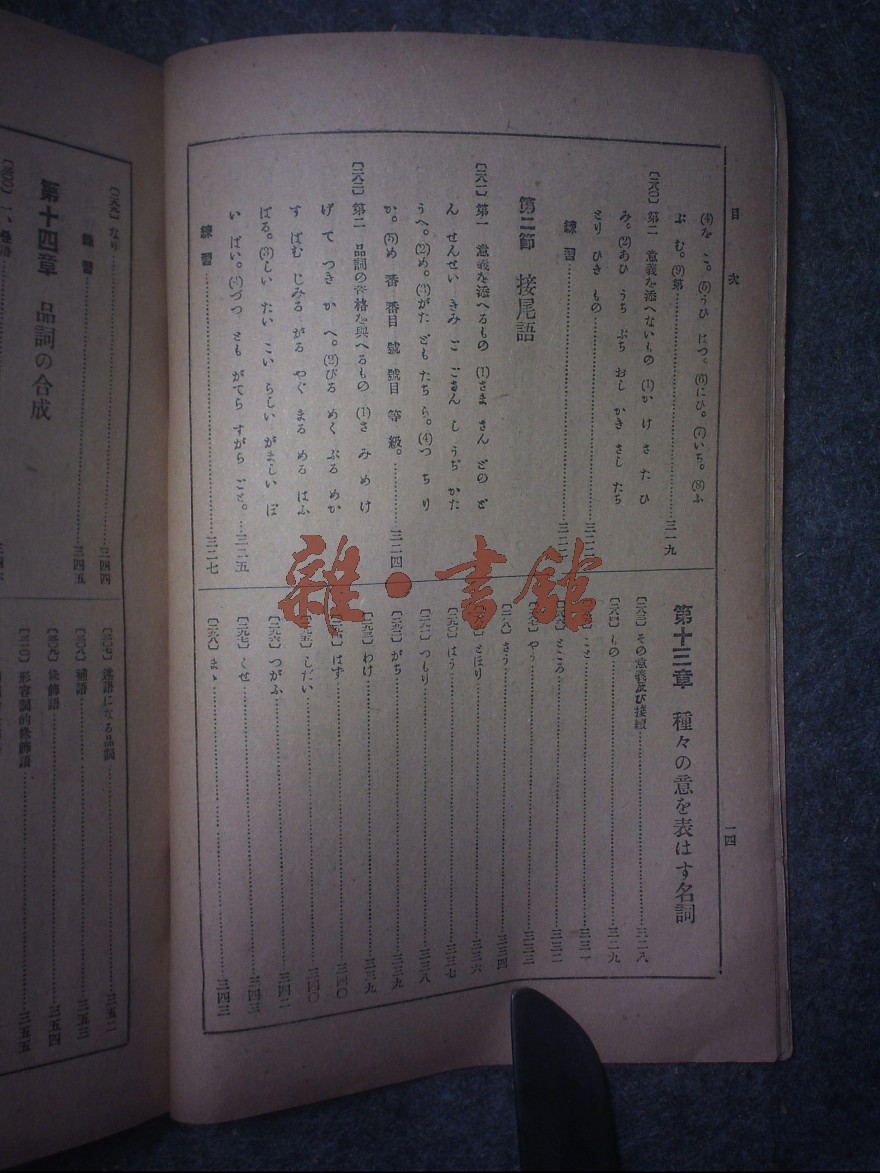 目次
一四
(4)を こ。(5)うひ はつ。(6)にひ。(7)いち。(8)ふ
ぶ む。(9)第……三一九
〔二八〇〕第二 意義を添へないもの (1)か け さ た ひ
み。(2)あひ うち ぶち おし かき さし たち
とり ひき もの……三二二
練習……三二二
第二節 接尾語
〔二八一〕第一 意義を添へるもの (1)さま さん どの ど
ん せんせい きみ ご ごぜん し うぢ かた
うへ。(2)め。(3)がた ども たち ら。(4)つ ちり
か。(5)め 番 番目 號 號目 等 級。……三二四
〔二八二〕第二 品詞の資格を與へるもの (1)さ み め け
げ て つき か へ。(2)びる めく ぶる めか
す ばむ じみる がる やぐ まる める はふ
ばる。(3)しい たい こい らしい がましい ぽ
い ぱい。(4)づつ とも がてら すがら ごと。……三二五
練習……三二七
第十三章 種々の意を表はす名詞
〔二八三〕その意義及び接續……三二八
〔二八四〕もの……三二九
こと……三三一
ところ……三三二
やう……三三三
さう……三三四
とほり……三三六
〔二九〇〕はう……三三七
〔二九一〕つもり……三三八
〔二九二〕がち……三三九
〔二九三〕わけ……三三九
はず……三四〇
しだい……三四〇
〔二九六〕つがふ……三四二
〔二九七〕くせ……三四三
〔二九八〕まゝ……三四三
〔二九九〕なり……三四四
練習……三四五
第十四章 品詞の合成
〔三〇〇〕一、疊語
〔三〇七〕述語になる品詞……三五二
〔三〇八〕補語……三五三
〔三〇九〕修飾語……三五四
〔三一〇〕形容詞的修飾語……三五五
雜·書館